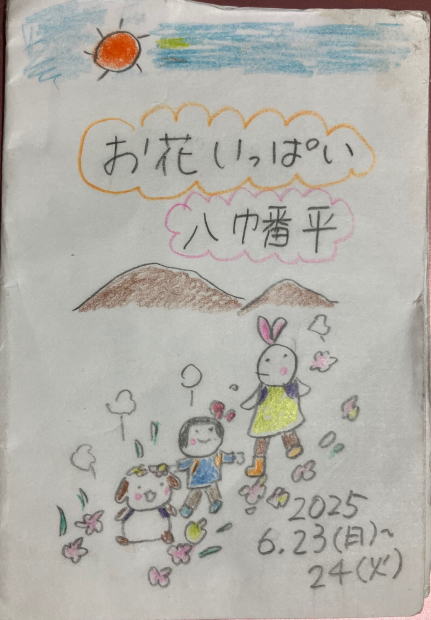 お花いっぱい
八巾番平
2025
6.23(日)~
24(火)